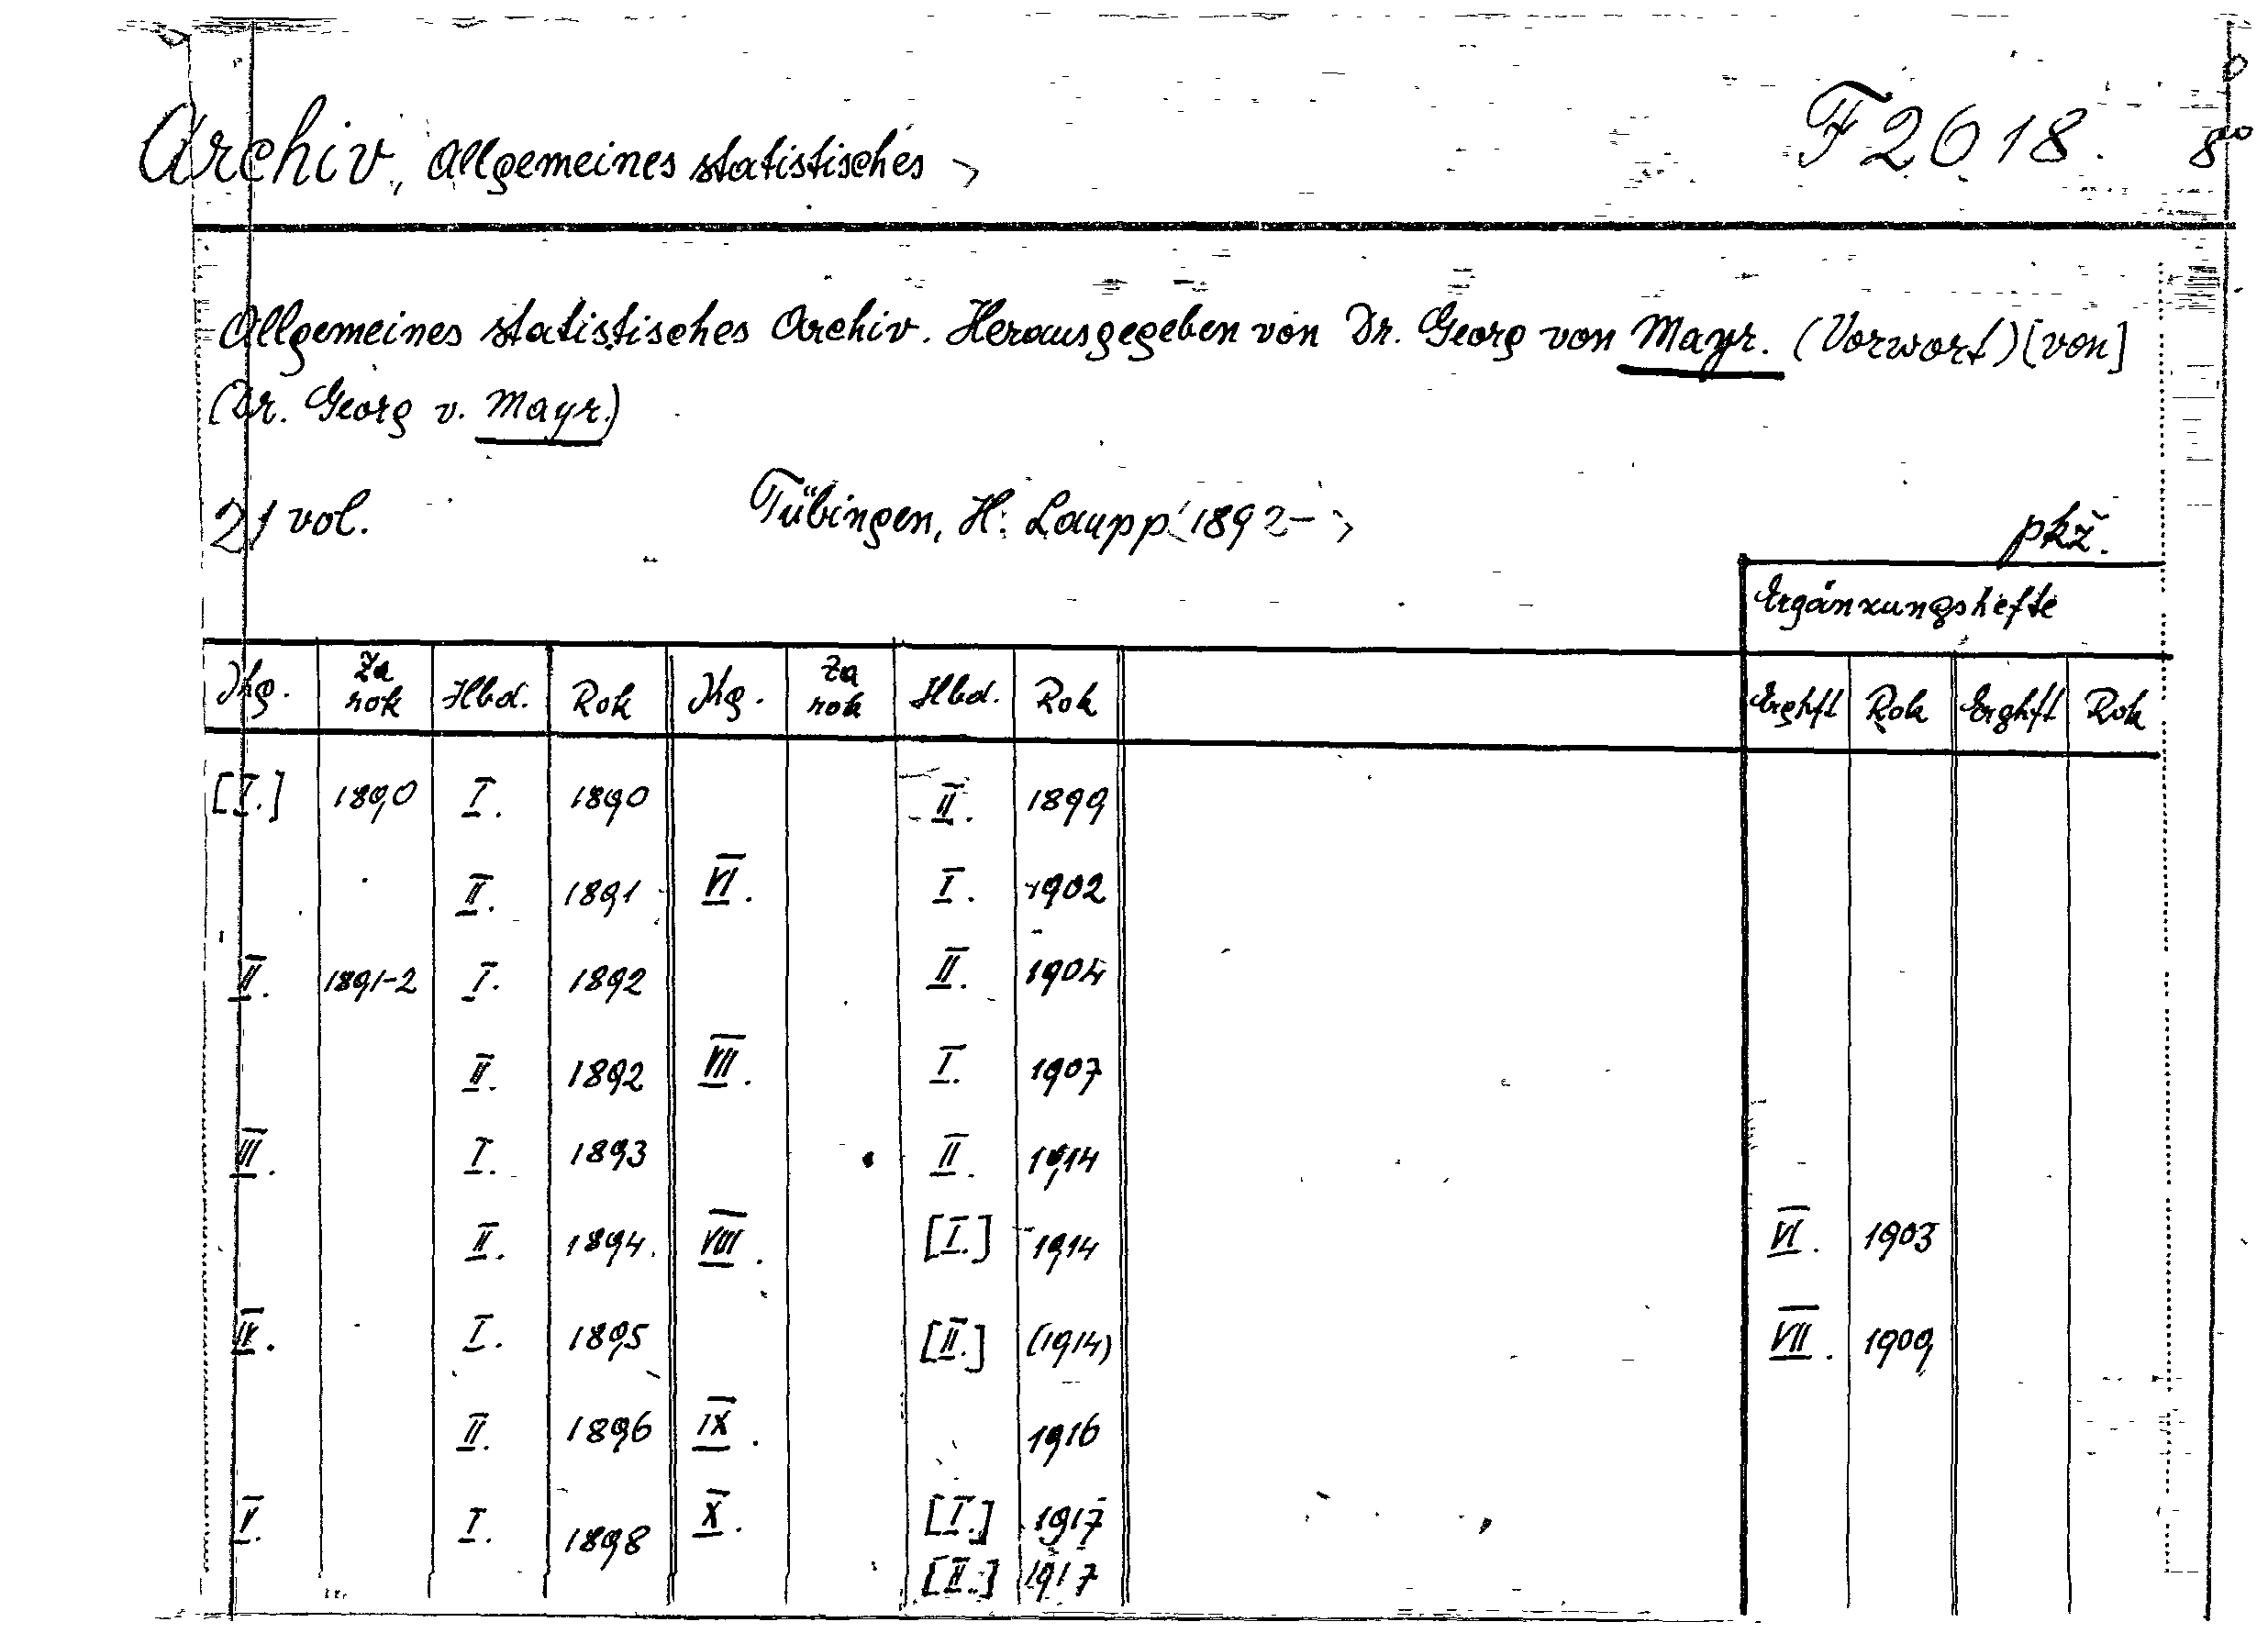 Archiv, Allgemeines statistisches F 2618. 8°
Allgemeines statistisches Archiv. Herausgegeben von Dr. Georg von Mayr. (Vorwort) [von]
(Dr. Georg v. Mayr.)
21 vol. Tübingen, H. Laupp 1892- pkž.
Ergänzungshefte
Jhg. Za rok Hbd. Rok Jhg. Za rok Hbd. Rok Erghft Rok Erghft Rok
[I.] 1890 I. 1890 II. 1899
II. 1891 VI. I. 1902
II. 1891-2 I. 1892 II. 1904
II. 1892 VII. I. 1907
III. I. 1893 II. 1914
II. 1894. VIII. [I.] 1914 VI. 1903
IV. I. 1895 [II.] (1914) VII. 1909
II. 1896 IX. 1916
V. I. 1898 X. [I.] 1917
[II.] 1917